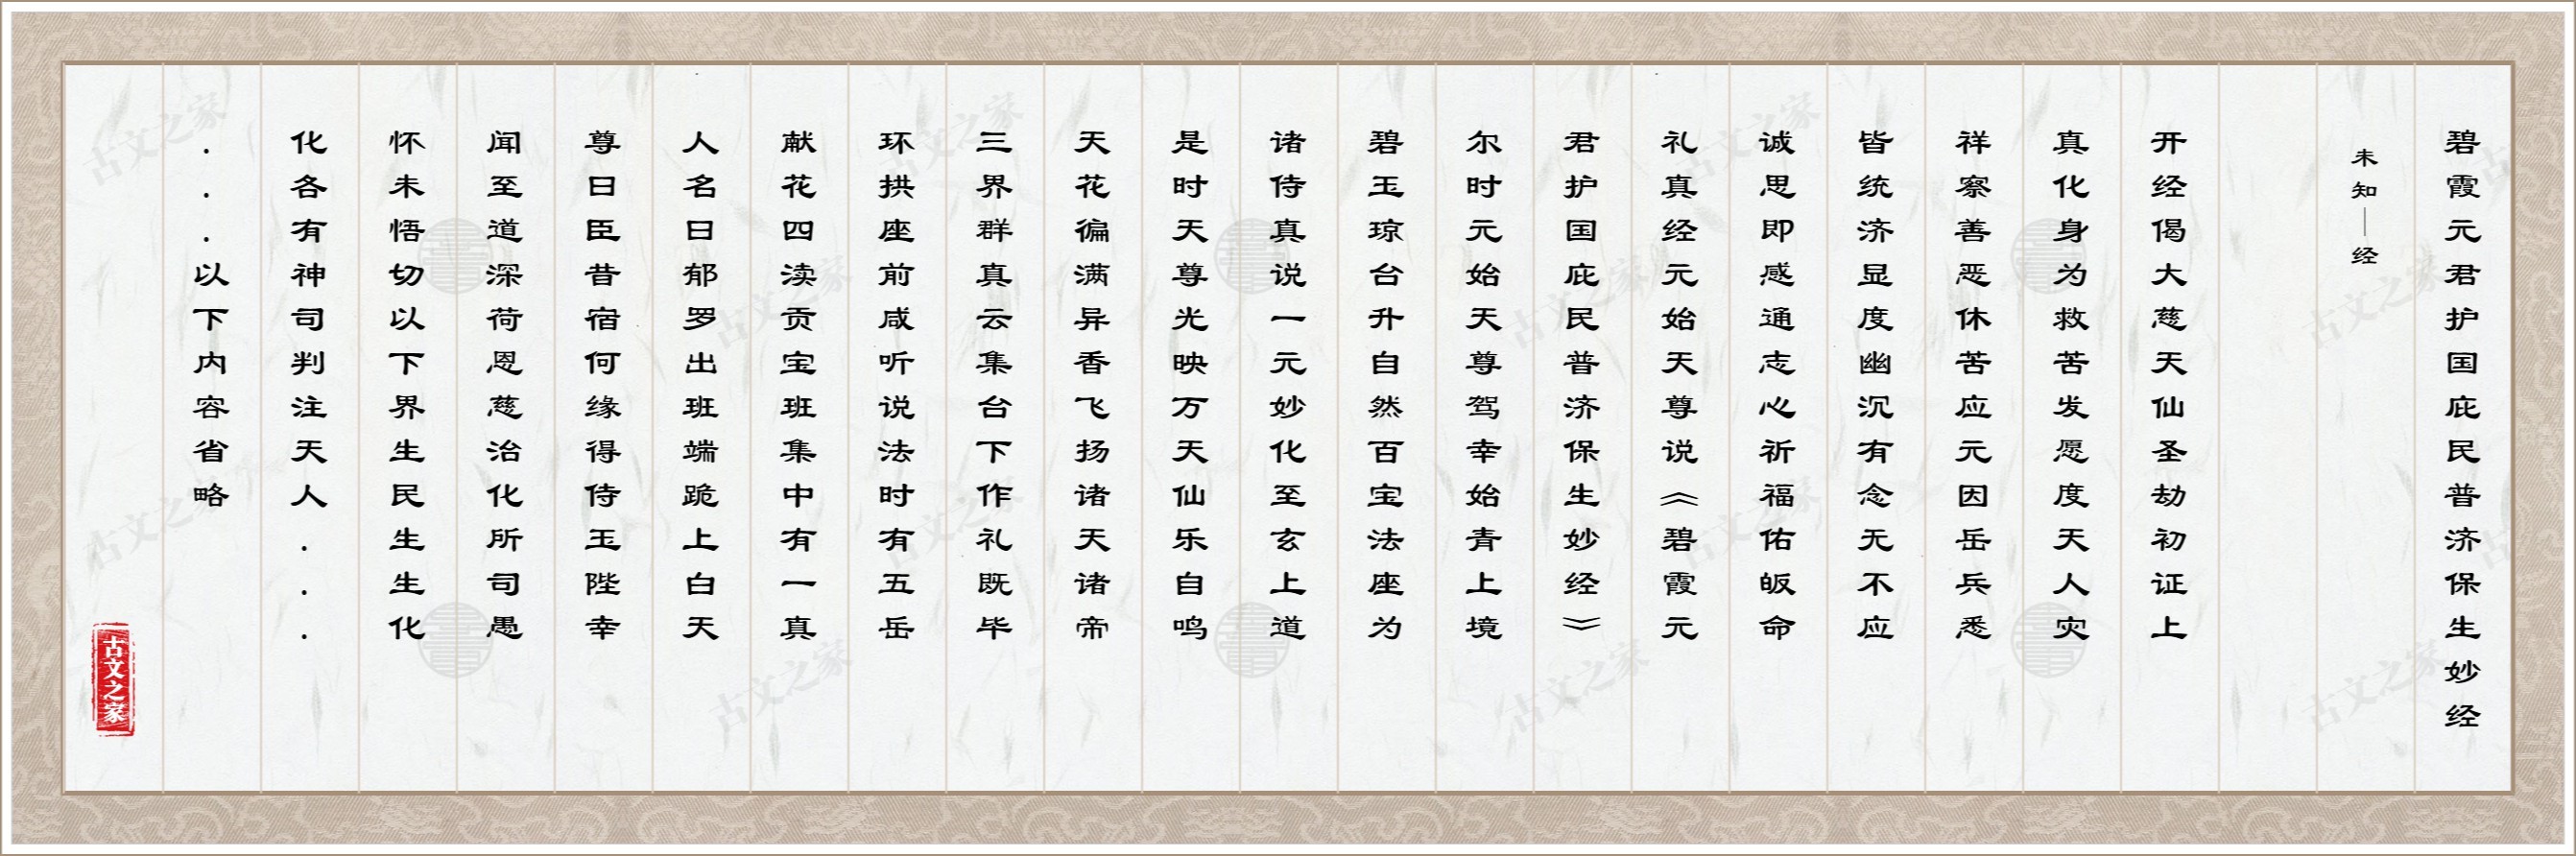 碧霞元君护国庇民普济保生妙经
未知｜经
开经偈大慈天仙圣劫初证上
真化身为救苦发愿度天人灾
祥察善恶休苦应元因岳兵悉
皆统济显度幽沉有念无不应
诚思即感通志心祈福佑皈命
礼真经元始天尊说《碧霞元
君护国庇民普济保生妙经》
尔时元始天尊驾幸始青上境
碧玉琼台升自然百宝法座为
诸侍真说一元妙化至玄上道
是时天尊光映万天天仙乐自鸣
天花徧满异香飞扬诸天诸帝
三界群真云集台下作礼既毕
环拱座前咸听说法时有五岳
献花四渎贡宝班集中有一真
人名曰郁罗出班端跪上白天
尊曰臣昔宿何缘得侍玉陛幸
闻至道深荷恩慈治化所司愚
怀未悟切以下界生民生生化
化各有神司判注天人...
...以下内容省略
古文之家